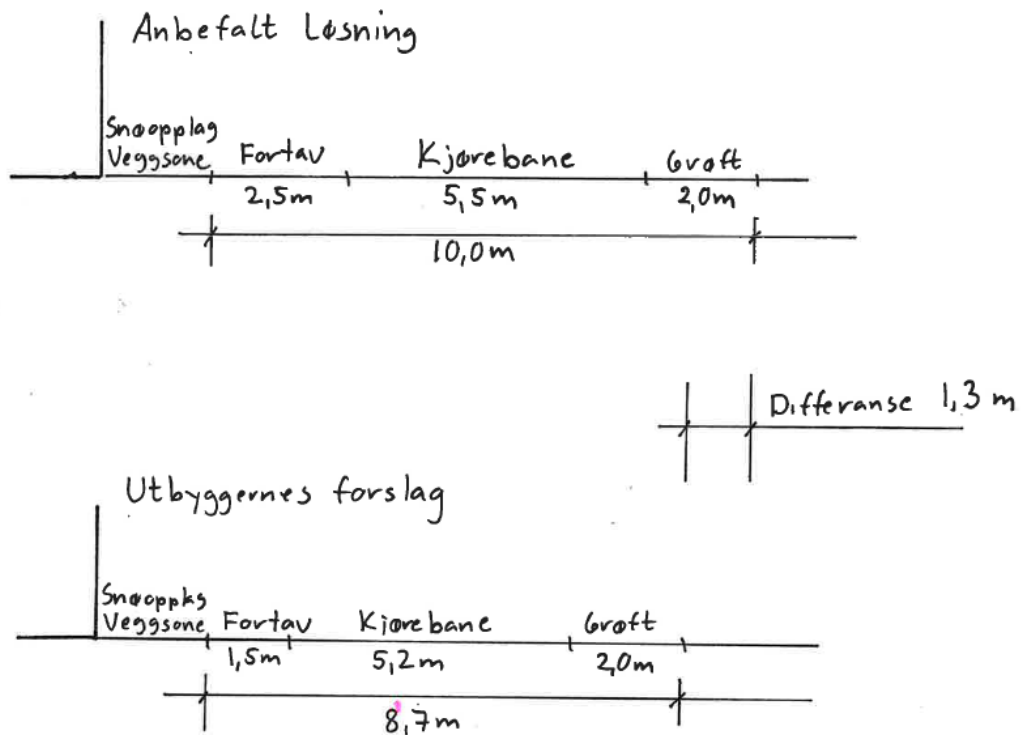 Anbefalt Løsning
Snøopplag
Veggsone Fortav Kjørebane Grøft
2,5m 5,5m 2,0m
10,0m
Differanse 1,3 m
Utbyggernes forslag
Snøopplag
Veggsone Fortav Kjørebane Grøft
1,5m 5,2m 2,0m
8,7m